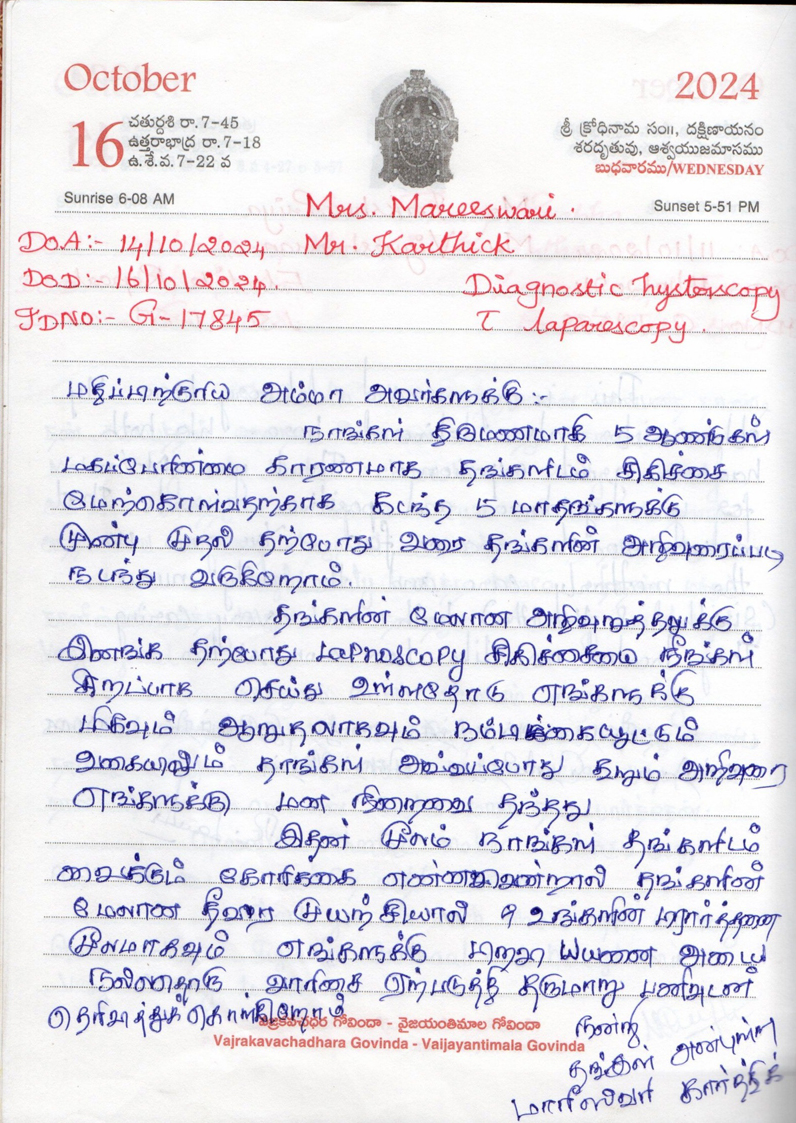 October
2024
16
చతుర్దశి రా.7-45
ఉత్తరాభాద్ర రా.7-18
ఉ.శే.వ.7-22 వ
శ్రీ క్రోధినామ సం॥, దక్షిణాయనం
శరదృతువు, ఆశ్వయుజమాసము
బుధవారము/WEDNESDAY
Sunrise 6-08 AM
Sunset 5-51 PM
Mrs. Mareeswari.
DOA:- 14/10/2024 Mr. Karthick
DOD:- 16/10/2024.
Diagnostic hysteroscopy
IDNO:- G-17845
c laparescopy.
மதிப்பிற்குரிய அம்மா அவர்களுக்கு:-
நாங்கள் திருமணமாகி 5 ஆண்டுகள்
மகப்பேரின்மை காரணமாக தங்களிடம் சிகிச்சை
மேற்கொள்வதற்காக கடந்த 5 மாதங்களுக்கு
முன்பு முதல் தற்போது வரை தங்களின் அறிவுரைப்படி
நடந்து வருகிறோம்.
தங்களின் மேலான அறிவுறுத்தலுக்கு
இணங்க தற்போது Laproscopy சிகிச்சையை நீங்கள்
சிறப்பாக செய்து உள்ளதோடு எங்களுக்கு
மிகவும் ஆறுதலாகவும் நம்பிக்கையூட்டும்
வகையிலும் தாங்கள் அவ்வப்போது கூறும் அறிவுரை
எங்களுக்கு மன நிறைவை தந்தது
இதன் மூலம் நாங்கள் தங்களிடம்
வைக்கும் கோரிக்கை என்னவென்றால் தங்களின்
மேலான தீவிர முயற்சியால் & உங்களின் பிரார்த்தனை
மூலமாகவும் எங்களுக்கு பயனை அடைய
நல்லதொரு வாரிசை ஏற்படுத்தி தருமாறு பணிவுடன்
தெரிவித்துக் கொள்கிறோம்
వజ్రకవచధర గోవిందా - వైజయంతిమాల గోవిందా
நன்றி
Vajrakavachadhara Govinda - Vaijayantimala Govinda
தங்கள் அன்புள்ள
மாரீஸ்வரி கார்த்திக்